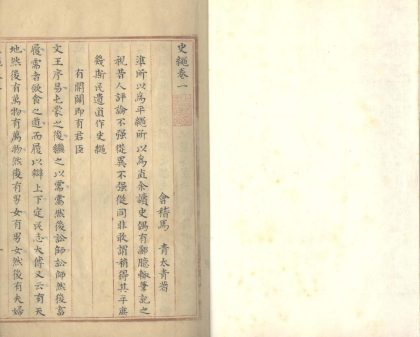 史繩卷一
會稽馬 青太青著
準所以為平繩所以為直余讀史偶有鄙臆輒筆記之
視昔人評論不强從異不强從同非敢謂稍得其平庶
幾斯民遺直作史繩
有開闢即有君臣
文王序易屯蒙之後繼之以需需然後訟師訟師然後畜
履需者飲食之道而履以辯上下定民志大傳又云有天
地然後有萬物有萬物然後有男女有男女然後有夫婦